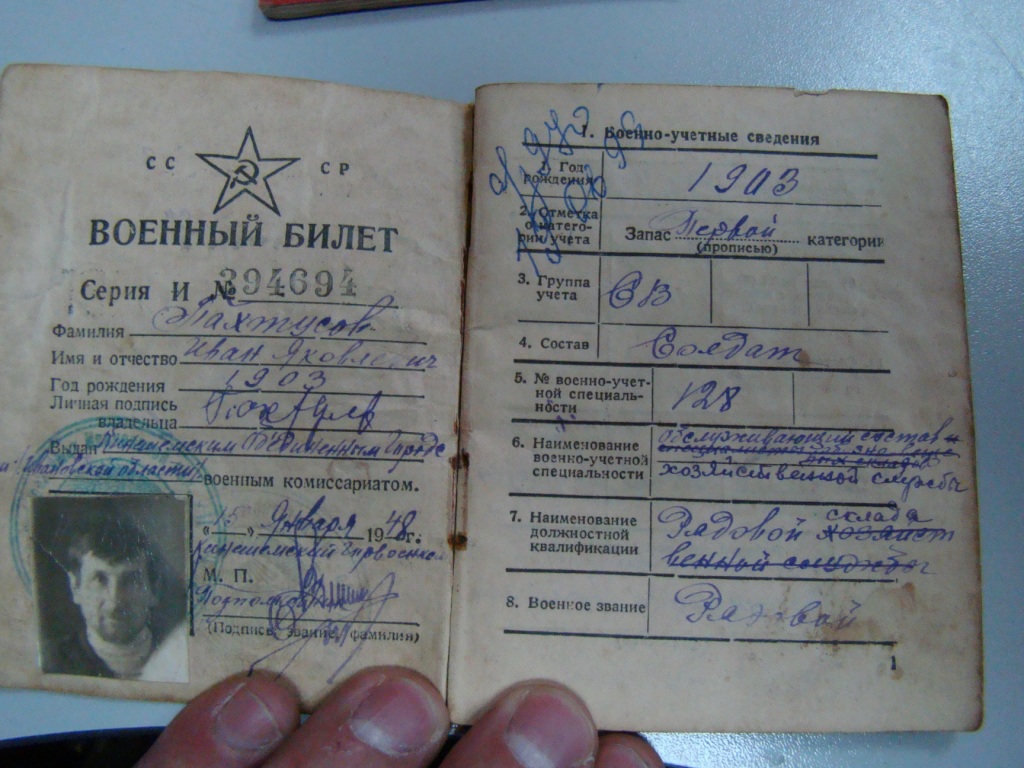 СС СР
ВОЕННЫЙ БИЛЕТ
Серия И № 394694
Фамилия Пахтусов
Имя и отчество Иван Яковлевич
Год рождения 1903
Личная подпись
владельца
Выдан Кинешемским Объединенным
Ивановской области
военным комиссариатом.
„15" Января 1948 г.
Кинешемский
М. П.
(Подпись, звание, фамилия)
1. Военно-учетные сведения
1. Год
рождения 1903
2. Отметка
о катего-
рии учета Запас Первой категории
(прописью)
3. Группа
учета СВ
4. Состав Солдат
5. № военно-учет-
ной специаль-
ности 128
6. Наименование
военно-учетной
специальности обслуживающий состав
хозяйственной службы
7. Наименование
должностной
квалификации Рядовой склада
хозяйст
венной службы
8. Военное звание Рядовой
1